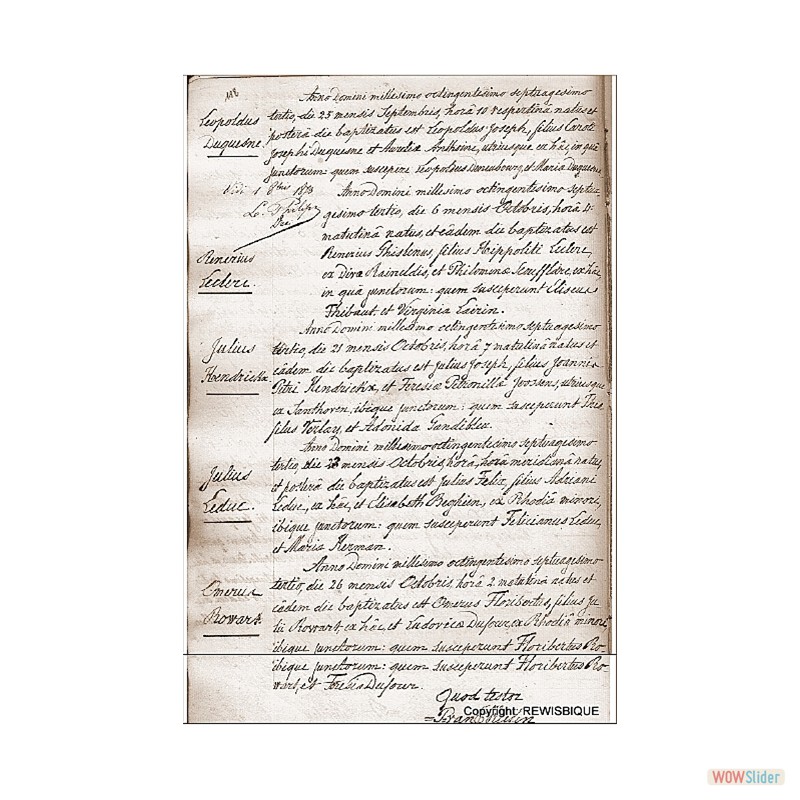 118
Anno Domini millesimo octingentesimo septuagesimo
Leopoldus Duquesne.
tertio, die 25 mensis Septembris, horâ 10 vespertinâ natus et
posterâ die baptizatus est Leopoldus Joseph, filius Caroli
Josephi Duquesne et Aureliæ Antheine, utriusque ex hâc, in quâ
junctorum: quem suscepere Leopoldus et Maria Duquesne
Vidi 1 8bris 1873
Philipp
Dec
Anno Domini millesimo octingentesimo septua-
gesimo tertio, die 6 mensis Octobris, horâ 4â
matutinâ natus, et eâdem die baptizatus est
Renerius Leclerc.
Renerius Ghislenus, filius Hippoliti Leclerc,
ex Divæ Raineldis, et Philominæ ex hâc
in quâ junctorum: quem susceperunt Eliseus
Thibaut et Virginia Lairin.
Anno Domini millesimo octingentesimo septuagesimo
Julius Hendrickx
tertio, die 21 mensis Octobris, horâ 7 matutinâ natus et
eâdem die baptizatus est Julius Joseph, filius Joannis
Petri Hendrickx, et Teresiæ Petronillæ Joossens, utriusque
ex Santhoven, ibique junctorum: quem susceperunt Theo
filus Verlay, et Adonida Gandibleu.
Anno Domini millesimo octingentesimo septuagesimo
Julius Leduc.
tertio, die 23 mensis Octobris, horâ, horâ meridianâ natus,
et posterâ die baptizatus est Julius Felix, filius Adriani
Leduc, ex hâc, et Elisabeth Beghein, ex Rhodiâ minori,
ibique junctorum: quem susceperunt Felicianus Leduc,
et Maria Herman.
Anno Domini millesimo octingentesimo septuagesimo
Omerus Rowart.
tertio, die 26 mensis Octobris, horâ 2 matutinâ natus et
eâdem die baptizatus est Omerus Floribertus, filius Ju
lii Rowart, ex hâc, et Ludovicæ Dufour, ex Rhodiâ minori
ibique junctorum: quem susceperunt Floribertus Ro-
ibique junctorum: quem susceperunt Floribertus Ro-
wart, et Tresia Dufour.
Quod testor
Copyright REWISBIQUE
WOWSlider